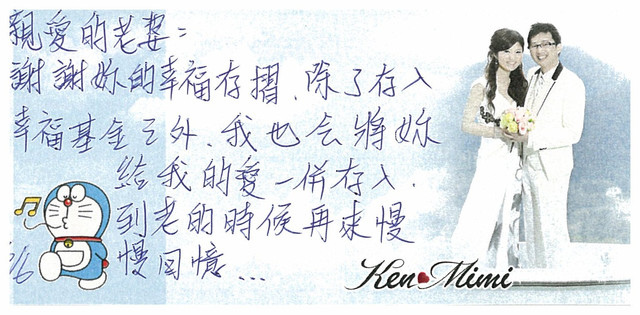 親愛的老婆:
謝謝妳的幸福存摺、除了存入
幸福基金之外、我也会將妳
給我的愛一併存入、
到老的時候再來慢
慢回憶...
Ken Mimi